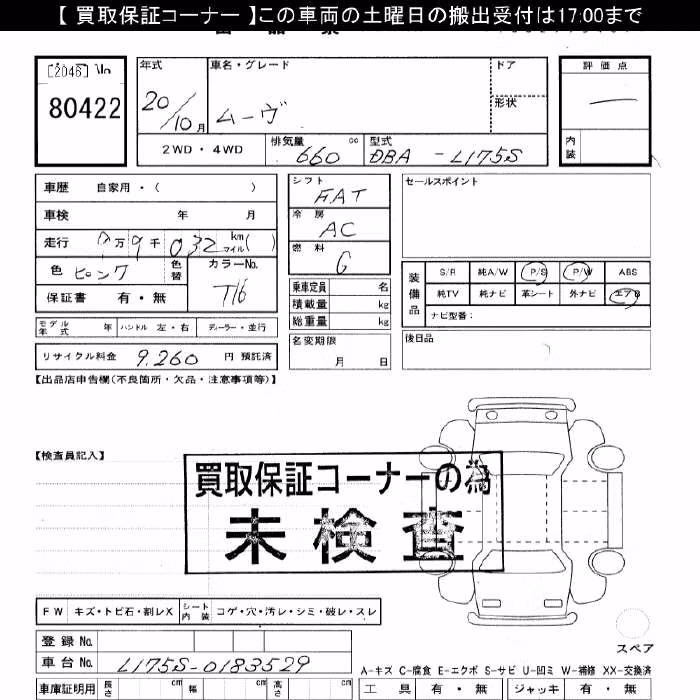 【 買取保証コーナー 】この車両の土曜日の搬出受付は17:00まで
[2046] No
80422
年式
20/10月
車名・グレード
ムーヴ
ドア
形状
評価点
—
内装
2WD・4WD
排気量 660 cc
型式 DBA - L175S
車歴 自家用・( )
車検 年 月
走行 万9千032 km マイル( )
色 ピンク 色替
カラーNo. T16
保証書 有・無
シフト FAT
冷房 AC
燃料 G
乗車定員 名
積載量 kg
総重量 kg
名変期限 月 日
セールスポイント
装備品 S/R 純A/W P/S P/W ABS
純TV 純ナビ 革シート 外ナビ エアB
ナビ型番:
後日品
モデル年式 年 ハンドル 左・右 ディーラー・並行
リサイクル料金 9,260 円 預託済
【出品店申告欄(不良箇所・欠品・注意事項等)】
【検査員記入】
買取保証コーナーの為
未検査
FW キズ・トビ石・割レX シート内装 コゲ・穴・汚レ・シミ・破レ・スレ
スペア
登録 No.
車台 No. L175S-0183529
A-キズ C-腐食 E-エクボ S-サビ U-凹ミ W-補修 XX-交換済
車庫証明用 長さ cm 幅 cm 高さ cm
工具 有・無 ジャッキ 有・無